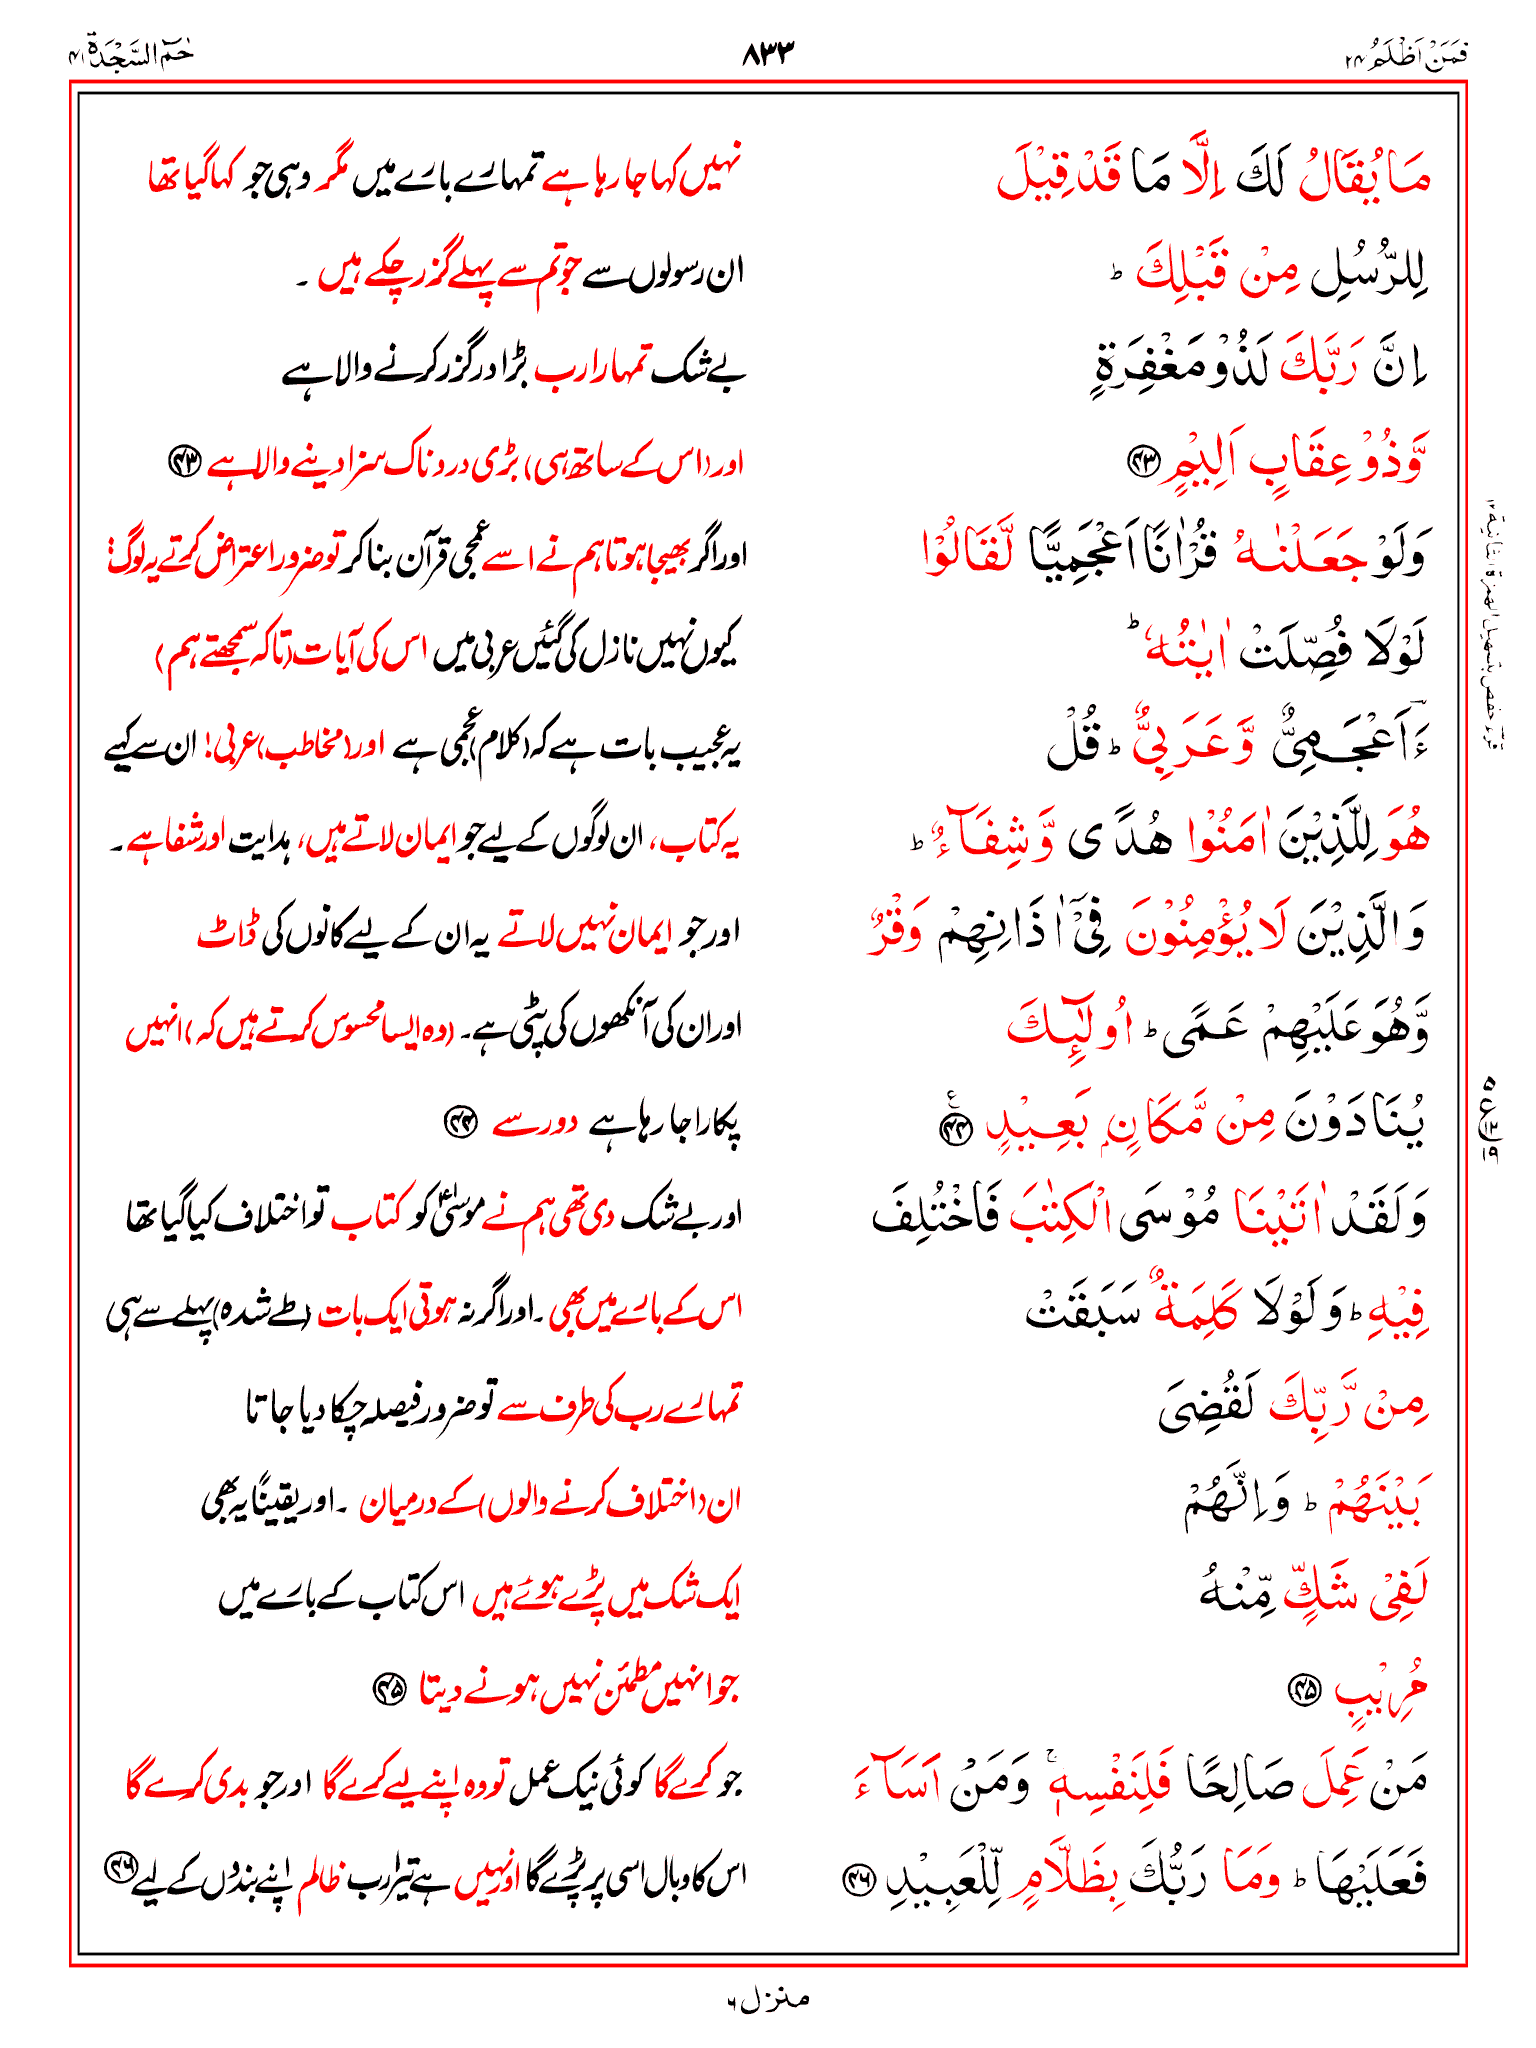 فَمَنْ اَظْلَمُ ۲۴
۸۳۳
حٰمٓ السَّجْدَة ۴۱
مَا يُقَالُ لَكَ اِلَّا مَا قَدْ قِيْلَ
نہیں کہا جا رہا ہے تمہارے بارے میں مگر وہی جو کہا گیا تھا
لِلرُّسُلِ مِنْ قَبْلِكَ ؕ
ان رسولوں سے جو تم سے پہلے گزر چکے ہیں ۔
اِنَّ رَبَّكَ لَذُوْ مَغْفِرَةٍ
بے شک تمہارا رب بڑا درگزر کرنے والا ہے
وَّذُوْ عِقَابٍ اَلِيْمٍ ﴿۴۳﴾
اور (اس کے ساتھ ہی) بڑی دردناک سزا دینے والا ہے ﴿۴۳﴾
وَلَوْ جَعَلْنٰهُ قُرْاٰنًا اَعْجَمِيًّا لَّقَالُوْا
اور اگر بھیجا ہوتا ہم نے اسے عجمی قرآن بنا کر تو ضرور اعتراض کرتے یہ لوگ:
لَوْلَا فُصِّلَتْ اٰيٰتُهٗ ؕ
کیوں نہیں نازل کی گئیں عربی میں اس کی آیات (تاکہ سمجھتے ہم)
ءَاَعْجَمِيٌّ وَّعَرَبِيٌّ ؕ قُلْ
یہ عجیب بات ہے کہ (کلام) عجمی ہے اور (مخاطب) عربی! ان سے کہیے
هُوَ لِلَّذِيْنَ اٰمَنُوْا هُدًى وَّشِفَآءٌ ؕ
یہ کتاب، ان لوگوں کے لیے جو ایمان لاتے ہیں، ہدایت اور شفا ہے ۔
وَالَّذِيْنَ لَا يُؤْمِنُوْنَ فِىْٓ اٰذَانِهِمْ وَقْرٌ
اور جو ایمان نہیں لاتے یہ ان کے لیے کانوں کی ڈاٹ
وَّهُوَ عَلَيْهِمْ عَمًى ؕ اُولٰٓئِكَ
اور ان کی آنکھوں کی پٹی ہے۔ (وہ ایسا محسوس کرتے ہیں کہ) انہیں
يُنَادَوْنَ مِنْ مَّكَانٍۭ بَعِيْدٍ ﴿۴۴﴾ ع
پکارا جا رہا ہے دور سے ﴿۴۴﴾
وَلَقَدْ اٰتَيْنَا مُوْسَى الْكِتٰبَ فَاخْتُلِفَ
اور بے شک دی تھی ہم نے موسیٰؑ کو کتاب تو اختلاف کیا گیا تھا
فِيْهِ ؕ وَلَوْلَا كَلِمَةٌ سَبَقَتْ
اس کے بارے میں بھی ۔ اور اگر نہ ہوتی ایک بات (طے شدہ) پہلے سے ہی
مِنْ رَّبِّكَ لَقُضِىَ
تمہارے رب کی طرف سے تو ضرور فیصلہ چکا دیا جاتا
بَيْنَهُمْ ؕ وَاِنَّهُمْ
ان (اختلاف کرنے والوں) کے درمیان ۔ اور یقیناً یہ بھی
لَفِىْ شَكٍّ مِّنْهُ
ایک شک میں پڑے ہوئے ہیں اس کتاب کے بارے میں
مُرِيْبٍ ﴿۴۵﴾
جو انہیں مطمئن نہیں ہونے دیتا ﴿۴۵﴾
مَنْ عَمِلَ صَالِحًا فَلِنَفْسِهٖ ۚ وَمَنْ اَسَآءَ
جو کرے گا کوئی نیک عمل تو وہ اپنے لیے کرے گا اور جو بدی کرے گا
فَعَلَيْهَا ؕ وَمَا رَبُّكَ بِظَلَّامٍ لِّلْعَبِيْدِ ﴿۴۶﴾
اس کا وبال اسی پر پڑے گا اور نہیں ہے تیرا رب ظالم اپنے بندوں کے لیے ﴿۴۶﴾
منزل ۶